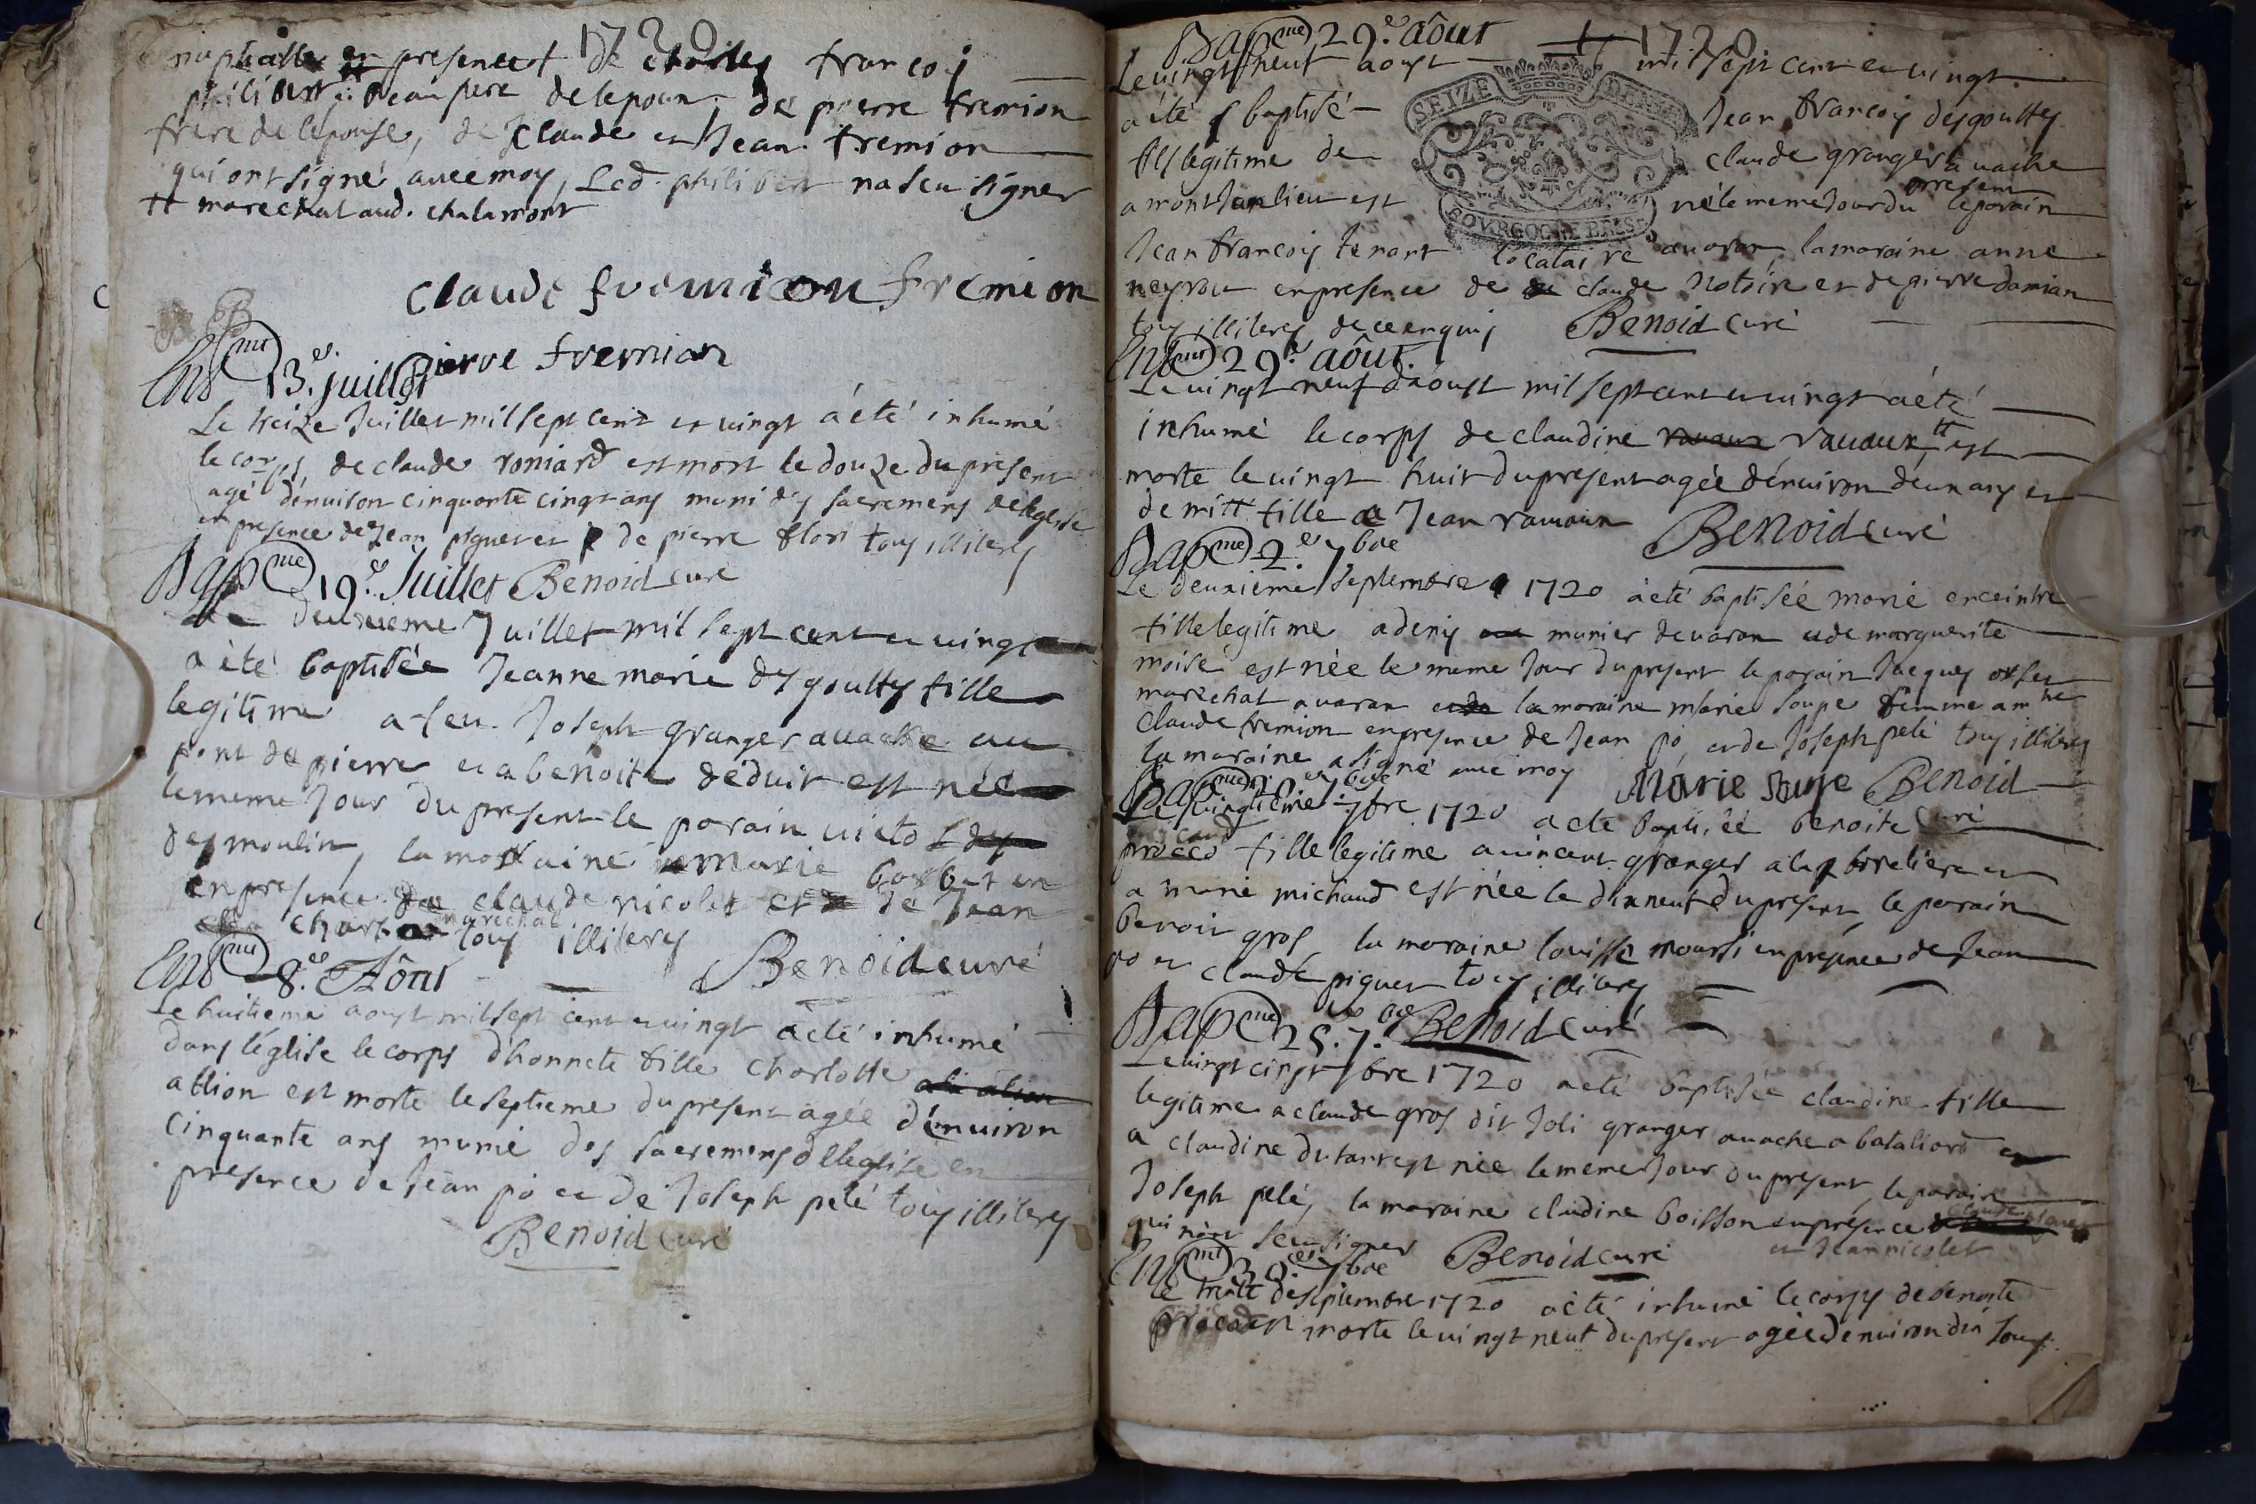 1720
nuptialle en presence de charles francois
philibert beau pere de lepoux, de pierre fremion
frere de lepouse, de claude et Jean fremion
qui ont signé avec moy, Led. philibert na sceu signer
# marechal aud. chalamont
claude fremion fremion
pierre fremion
Ent.ᵐᵗ 13.ᵉ juillet
Le treize Juillet mil sept cent et vingt a été inhumé
le corps de claude roniard est mort le douze du present
agé dénuiron cinquante cinqt ans muni des sacremens de léglise
en presence de Jean piguet et de pierre flori tous illiteres
Bap.ᵐᵉ 19.ᵉ Juillet Benoid curé
deuxieme Juillet mil sept cent et vingt
a été baptisée Jeanne marie desgouttes fille
legitime a feu Joseph granger a vache au
pont de pierre et a benoite déduit est née
le meme Jour du present le parain victo
des moulin, la maraine marie borbet en
en presence de claude nicolet et de Jean
marechal tous illiteres
Benoid curé
Ent.ᵐᵗ 8.ᵉ Aôut
Le huitieme aoust mil sept cent et vingt a eté inhumé
dans l'église le corps d'honnete fille Charlotte
allion est morte le septieme du present agée dénuiron
cinquante ans munie des sacremens d l'eglise en
presence de Jean pó et de Joseph pelé tous illiteres
Benoid curé
Bap.ᵐᵉ 29.ᵉ aôut 1720
Le vingt neuf aoust mil sept cent et vingt
SEIZE DENIERS
BOURGOGNE BRESSE
a été baptisé Jean francois desgouttes
fils legitime de claude granger a vache
a mont Janlieu est né le meme Jour du present le parain
Jean francois tenant locataire a varan, la maraine anne
neyrou en presence de claude notoire et de pierre damian
tous illiteres de ce enquis Benoid curé
Ent.ᵐᵗ 29.ᵉ aôut.
Le vingt neuf d'aoust mil sept cent et vingt a été
inhumé le corps de claudine vauaux # est
morte le vingt huit du present agée dénuiron deux ans et
demi # fille a Jean vauaux Benoid curé
Bap.ᵐᵉ 2.ᵉ 7bre
Le deuxieme septembre 1720 a été baptisée marie enceintre
fille legitime a denis munier de varan et de marguerite
moise est née le meme Jour du present le parain Jacques
marechal a varan la maraine marie soupe femme a mᵗʳᵉ
claude fremion en presence de Jean pó et de Joseph pelé tous illiteres
la maraine a signé avec moy Marie Supe Benoid
curé
Bap.ᵐᵉ 20.ᵉ 7bre
Le vingtieme 7bre 1720 a eté baptisée benoite
fille legitime a vincent granger a la breliere et
a marie michaud est née le dixneuf du present, le parain
benoit gros, la maraine louisse moursi en presence de Jean
pó et claude piguet tous illiteres
Bap.ᵐᵉ 25. 7.bre Benoid curé
Le vingt cinqt 7bre 1720 a eté baptisée claudine fille
legitime a claude gros dit Joli granger a vache a bataliard et
a claudine dutart est née le meme Jour du present, le parain
Joseph pelé, la maraine cludine boisson en presence
et Jean nicolet
qui nont sceu signer Benoid curé
Ent.ᵐᵗ 30.ᵉ 7bre
Le trente de septembre 1720 a été inhumé le corps de benoite
morte le vingt neuf du present agée denuiron dix Jours